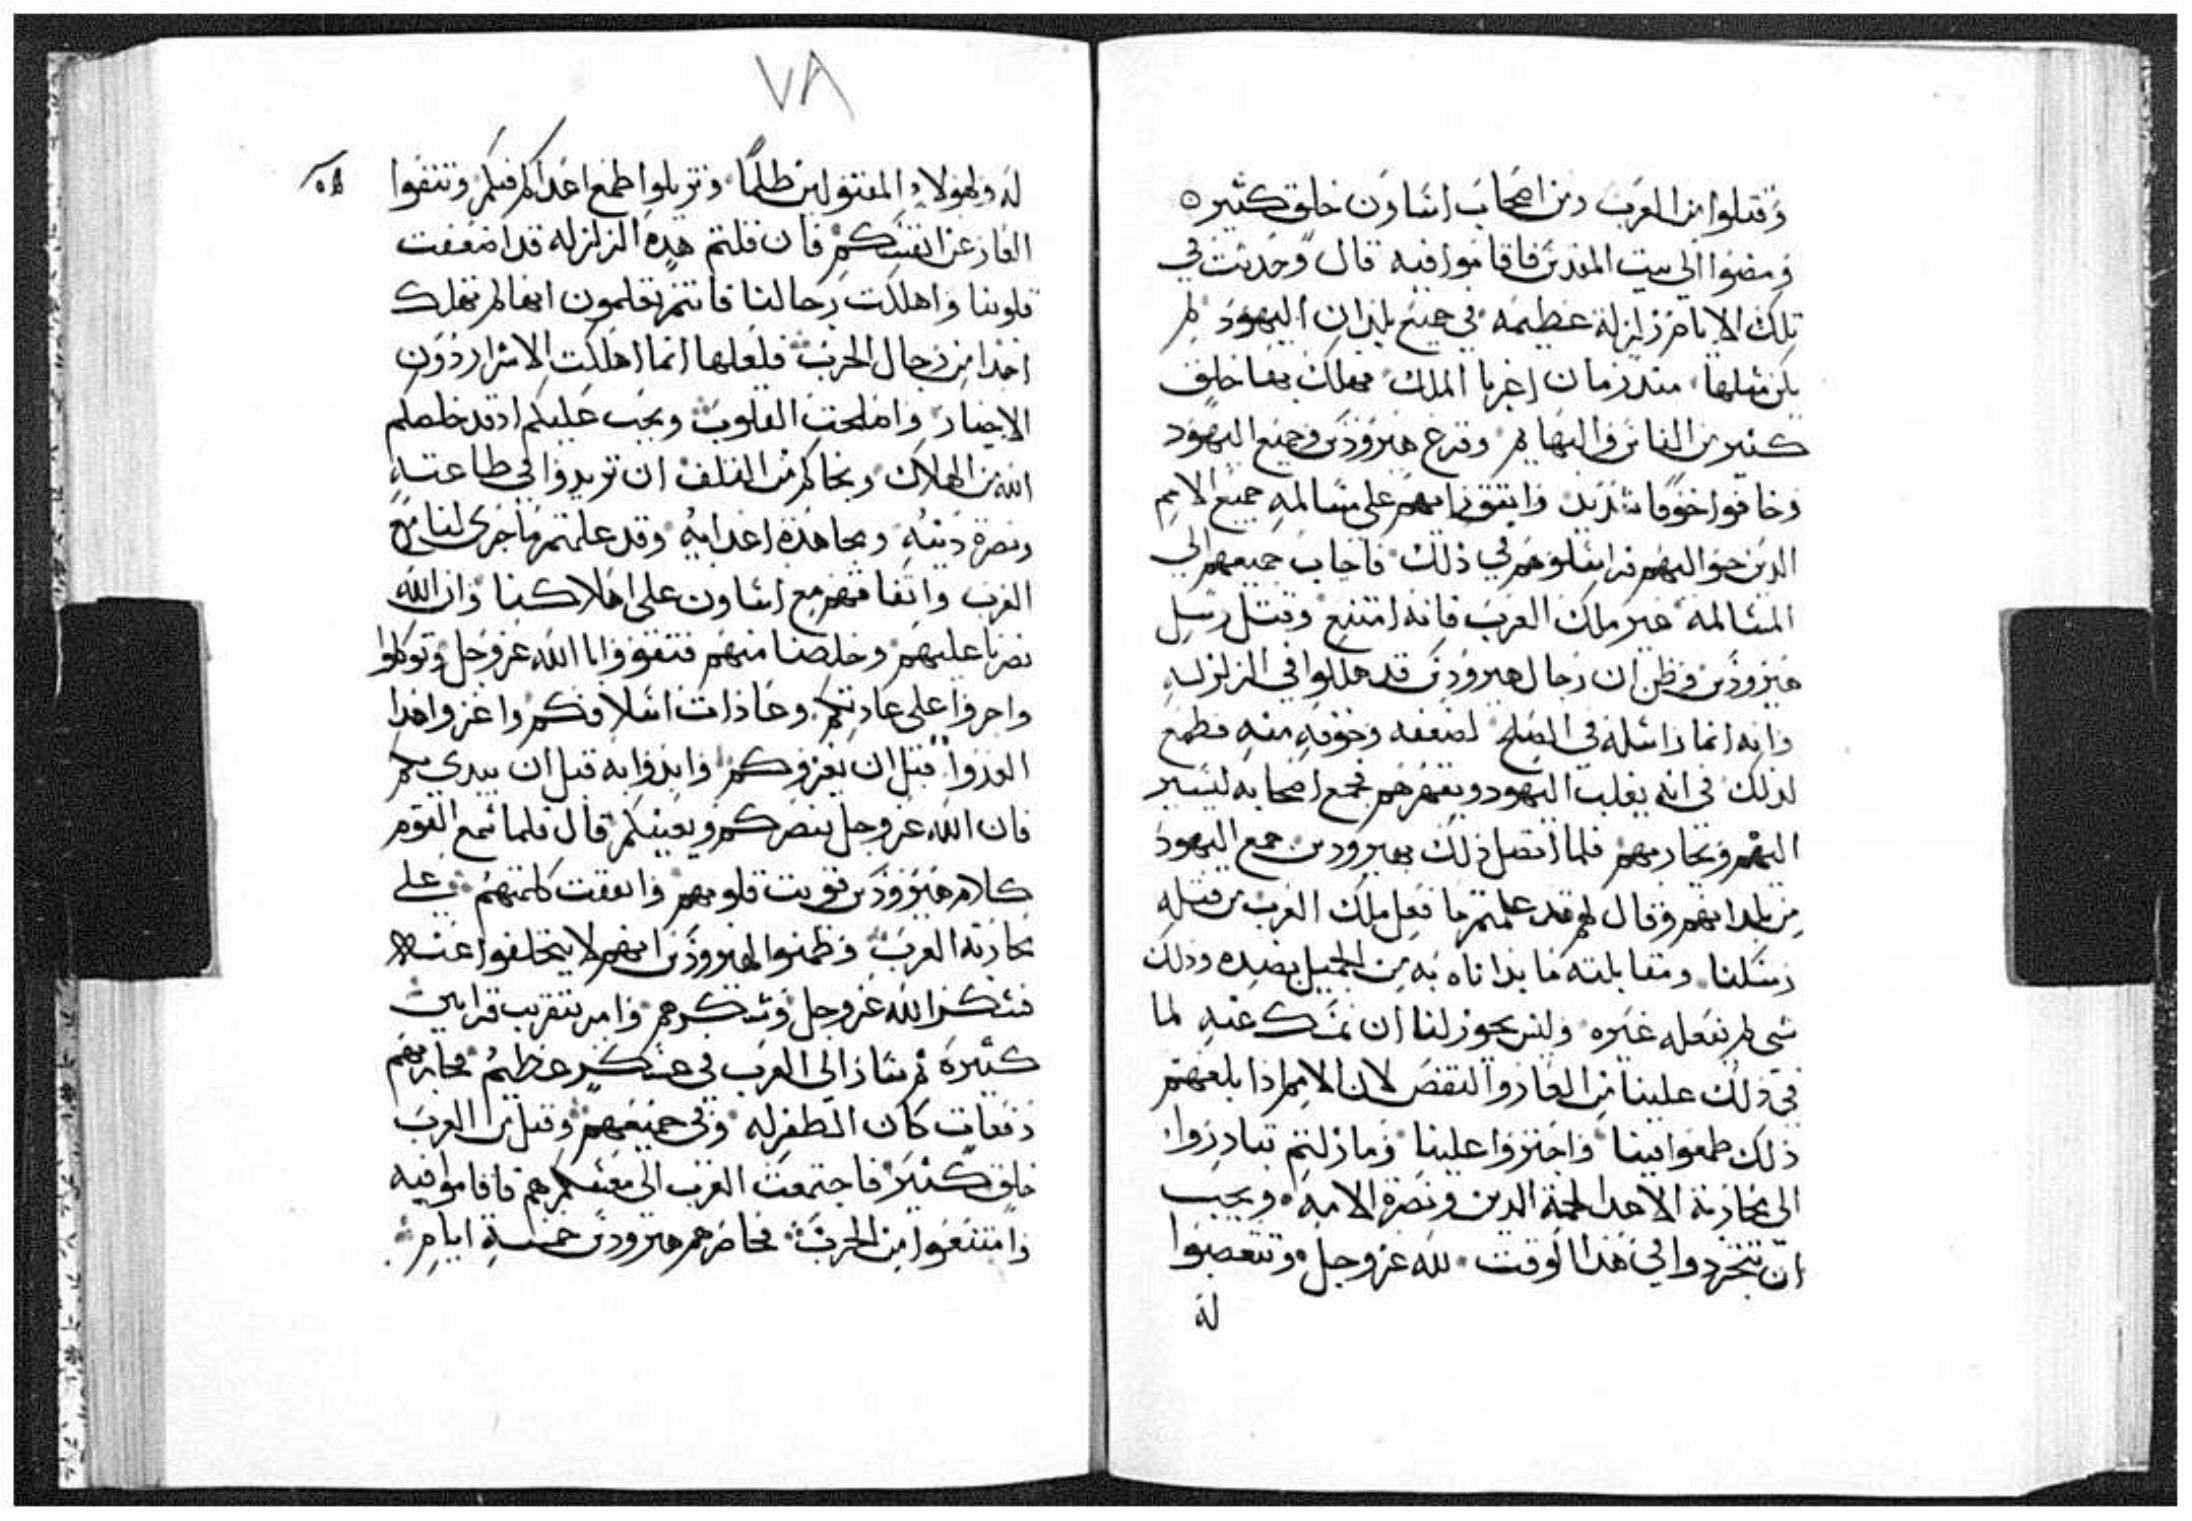 وقتلوا من العرب ومن اصحاب اساون خلق كثيره
ومضوا الى بيت المقدس فاقاموا فيه قال وحدثت في
تلك الايام زلزلة عظيمه في جميع بلدان اليهود لم
يكن مثلها منذ زمان اخريا الملك فهلك بها خلق
كثير من الناس والبهايم وفزع هيرودس وجميع اليهود
وخافوا خوفا شديد واتفق رايهم على مسالمه جميع الامم
الذين حواليهم فراسلوهم في ذلك فاجاب جميعهم الي
المسالمه غير ملك العرب فانه امتنع وقتل رسل
هيرودس وظن ان رجال هيرودس قد هلكوا في الزلزله
وانه انما راسله في الصلح لضعفه وخوفه منه فطمع
لذلك في انه يغلب اليهود ويقهرهم فجمع اصحابه ليسير
اليهم ويحاربهم فلما اتصل ذلك بهيرودس جمع اليهود
من بلدانهم وقال لهم قد علمتم ما فعل ملك العرب من قتله
رسلنا ومقابلته ما بداناه به من الجميل بضده وذلك
شي لم نفعله غيره وليس يجوز لنا ان نمسك عنه لما
في ذلك علينا من العار والنقص لان الامم اذا بلغهم
ذلك طمعوا فينا واجتروا علينا وما زلتم تبادروا
الى محاربة الاعدا لمحبة الدين ونصرة الامه ويجب
ان تتجردوا في هذا الوقت لله عز وجل وتتعصبوا
له
٧٨
له ولهولاء المقتولين ظلما وتزيلوا طمع اعداكم فيكم وتنفوا
العار عن انفسكم فان قلتم هذه الزلزله قد اضعفت
قلوبنا واهلكت رجالنا فانتم تعلمون انها لم تهلك
احدا من رجال الحرب فلعلها انما اهلكت الاشرار دون
الاخيار واصلحت القلوب ويجب عليكم اد قد خلصكم
الله من الهلاك ونجاكم من التلف ان تزيدوا في طاعته
ونصرة دينه ومجاهدة اعدايه وقد علمتم ما جرى لنا مع
العرب واتفاقهم مع اساون على اهلاكنا وان الله
نصرنا عليهم وخلصنا منهم فتقووا بالله عز وجل وتوكلوا
واجروا على عادتكم وعادات اسلافكم واغزوا هذا
العدوا قبل ان يغزوكم وابدوا به قبل ان يبدي بكم
فان الله عز وجل ينصركم ويعينكم قال فلما سمع القوم
كلام هيرودس قويت قلوبهم واتفقت كلمتهم على
محاربه العرب وضمنوا لهيرودس انهم لا يتخلفوا عنه
فشكر الله عز وجل وشكرهم وامر بتقريب قرابين
كثيره ثم سار الي العرب في عسكر عظيم فحاربهم
دفعات كان الظفر له وفي جميعهم وقتل من العرب
خلق كثير فاجتمعت العرب الى معسكرهم فاقاموا فيه
وامتنعوا من الحرب فحاصرهم هيرودس خمسة ايام